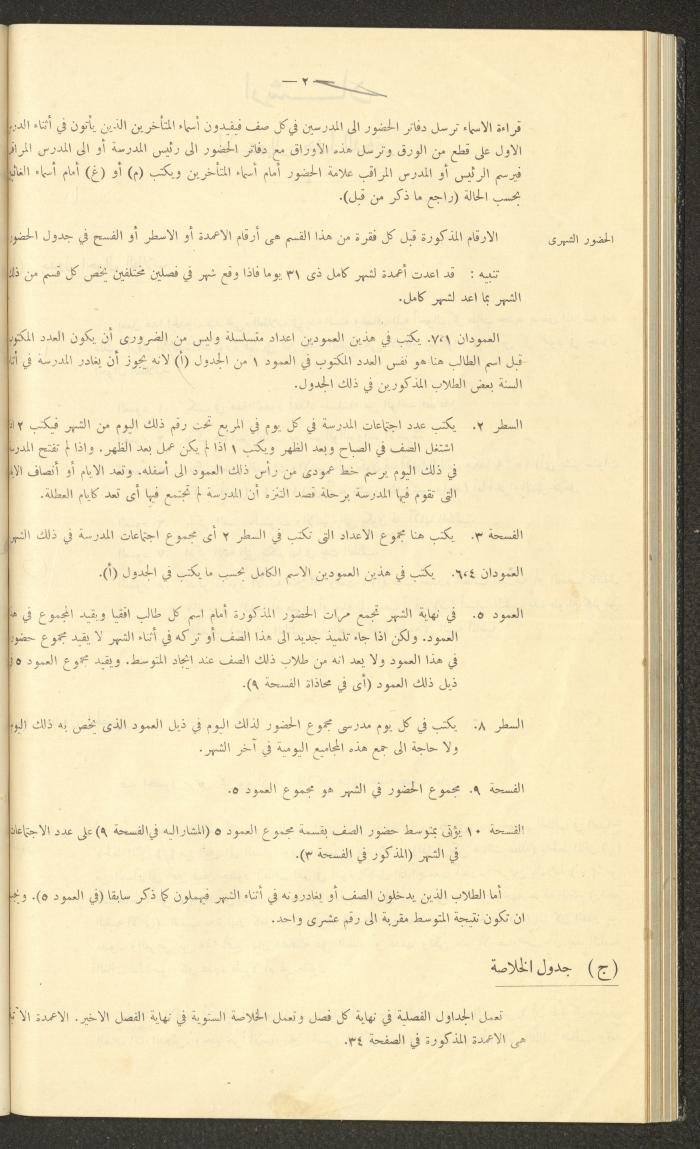 — ٢ —
قراءة الاسماء ترسل دفاتر الحضور الى المدرسين في كل صف فيفيدون أسماء المتأخرين الذين يأتون في أثناء
الاول على قطع من الورق وترسل هذه الاوراق مع دفاتر الحضور الى رئيس المدرسة أو الى المدرس
فيرسم الرئيس أو المدرس المراقب علامة الحضور أمام أسماء المتأخرين ويكتب (م) أو (غ) أمام أسماء
بحسب الحالة (راجع ما ذكر من قبل).
الحضور الشهرى
الارقام المذكورة قبل كل فقرة من هذا القسم هى أرقام الاعمدة أو الاسطر أو الفسح في جدول الحضور
تنبيه : قد اعدت أعمدة لشهر كامل ذى ٣١ يوما فاذا وقع شهر في فصلين مختلفين يخص كل قسم من
الشهر بما اعد لشهر كامل.
العمودان ٧،١. يكتب في هذين العمودين اعداد متسلسلة وليس من الضرورى أن يكون العدد
قبل اسم الطالب هنا هو نفس العدد المكتوب في العمود ١ من الجدول (أ) لانه يجوز أن يغادر المدرسة في
السنة بعض الطلاب المذكورين في ذلك الجدول.
السطر ٢. يكتب عدد اجتماعات المدرسة في كل يوم في المربع تحت رقم ذلك اليوم من الشهر فيكتب ٢
اشتغل الصف في الصباح وبعد الظهر ويكتب ١ اذا لم يكن عمل بعد الظهر. واذا لم تفتح
في ذلك اليوم يرسم خط عمودى من رأس ذلك العمود الى أسفله. وتعد الايام أو أنصاف
التى تقوم فيها المدرسة برحلة قصد التنزه أن المدرسة لم تجتمع فيها أى تعد كايام العطلة.
الفسحة ٣. يكتب هنا مجموع الاعداد التى تكتب في السطر ٢ أى مجموع اجتماعات المدرسة في ذلك الشهر
العمودان ٦،٤. يكتب في هذين العمودين الاسم الكامل بحسب ما يكتب في الجدول (أ).
العمود ٥. في نهاية الشهر تجمع مرات الحضور المذكورة أمام اسم كل طالب افقيا ويقيد المجموع في
العمود. ولكن اذا جاء تلميذ جديد الى هذا الصف أو تركه في أثناء الشهر لا يقيد مجموع
في هذا العمود ولا يعد انه من طلاب ذلك الصف عند ايجاد المتوسط. ويقيد مجموع العمود ٥
ذيل ذلك العمود (أى في محاذاة الفسحة ٩).
السطر ٨. يكتب في كل يوم مدرسى مجموع الحضور لذلك اليوم في ذيل العمود الذى يخص به ذلك اليوم
ولا حاجة الى جمع هذه المجاميع اليومية في آخر الشهر.
الفسحة ٩. مجموع الحضور في الشهر هو مجموع العمود ٥.
الفسحة ١٠ يؤتى بمتوسط حضور الصف بقسمة مجموع العمود ٥ (المشار اليه في الفسحة ٩) على عدد الاجتماعات
في الشهر (المذكور في الفسحة ٣).
أما الطلاب الذين يدخلون الصف أو يغادرونه في أثناء الشهر فيهملون كما ذكر سابقا (في العمود ٥).
ان تكون نتيجة المتوسط مقربة الى رقم عشرى واحد.
(ج) جدول الخلاصة
تعمل الجداول الفصلية في نهاية كل فصل وتعمل الخلاصة السنوية في نهاية الفصل الاخير. الاعمدة
هى الاعمدة المذكورة في الصفحة ٣٤.